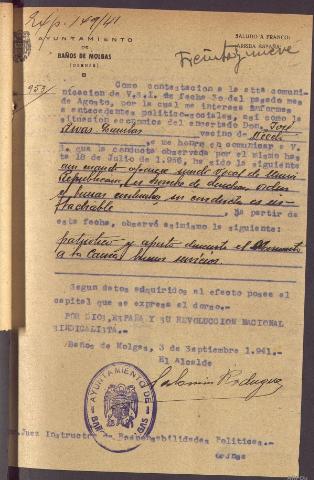 Exp. 189/41
AYUNTAMIENTO
DE
BAÑOS DE MOLGAS
(ORENSE)
SALUDO A FRANCO:
¡ARRIBA ESPAÑA!
Treinta y nueve
953
Como contestación a la atta comuni-
cacion de V.S.I. de fecha 30 del pasado mes
de Agosto, por la cual me interesa informes
a antecedentes politico-sociales, así como la
situacion económica del encartado Don José
vecino de
, me honro en comunicar a V.
I. que la conducta observada por el mismo hasta
18 de Julio de 1.936, ha sido la siguiente
Republicana,
conducta es in-
tachable .Ya partir de
esta fecha, observó asimismo lo siguiente:
patriotico y aporto durante el Movimiento
a la Causa buenos servicios.
Segun datos adquiridos al efecto posee el
capital que se expresa al dorso.-
POR DIOS, ESPAÑA Y SU REVOLUCION NACIONAL
SINDICALISTA.-
Baños de Molgas, 3 de Septiembre 1.941.-
El Alcalde
AYUNTAMIENTO DE BAÑOS DE MOLGAS
Juez Instructor de Responsabilidades Politicas.-
Orense